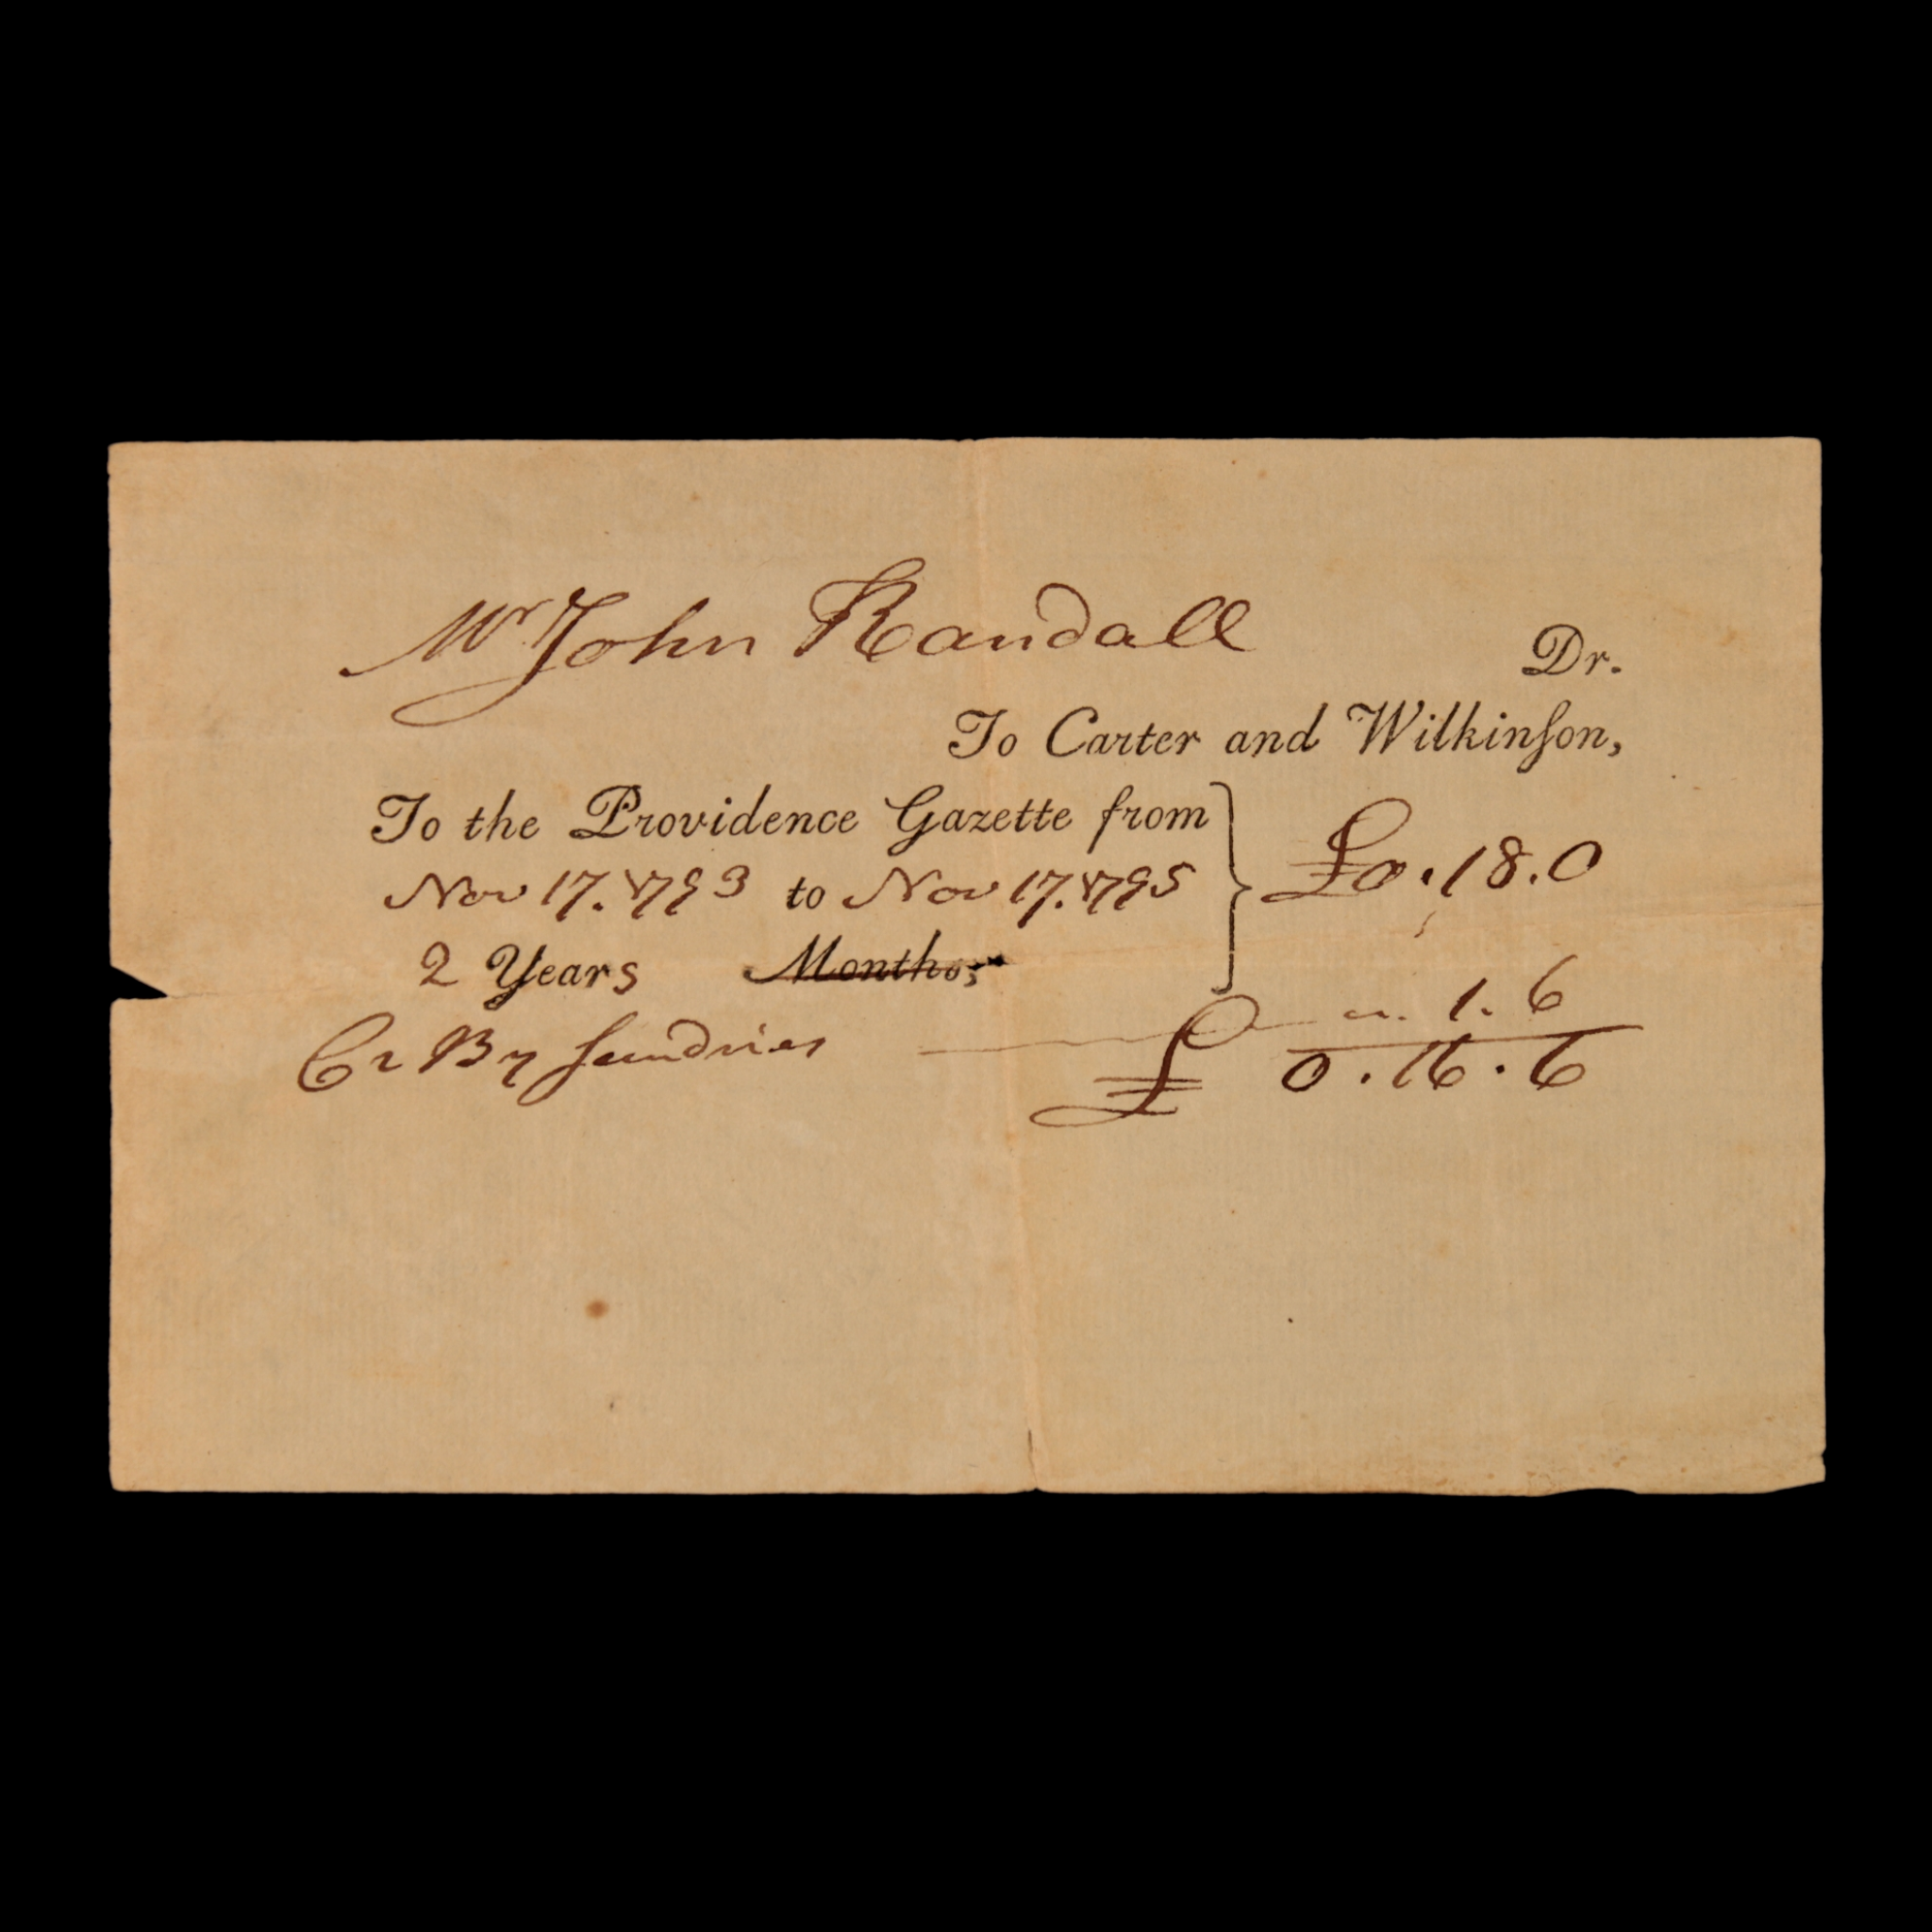 Mr John Randall
Dr.
To Carter and Wilkinſon,
To the Providence Gazette from
Nov 17. 1793 to Nov 17. 1795
£0.18.0
2 Years Months,
Cr By Sundries 1. 6
£ 0.16.6